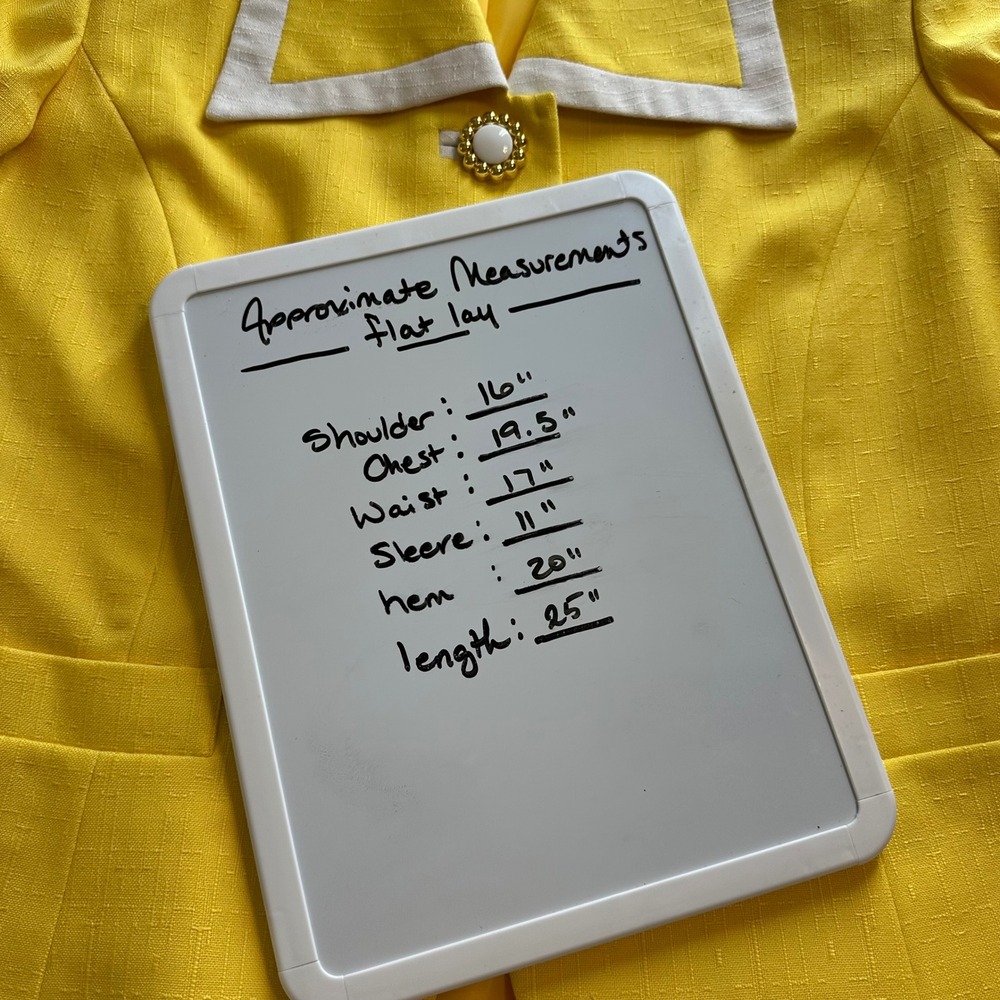 Approximate Measurements
flat lay
Shoulder: 16"
Chest: 19.5"
Waist: 17"
Sleeve: 11"
hem : 20"
length: 25"